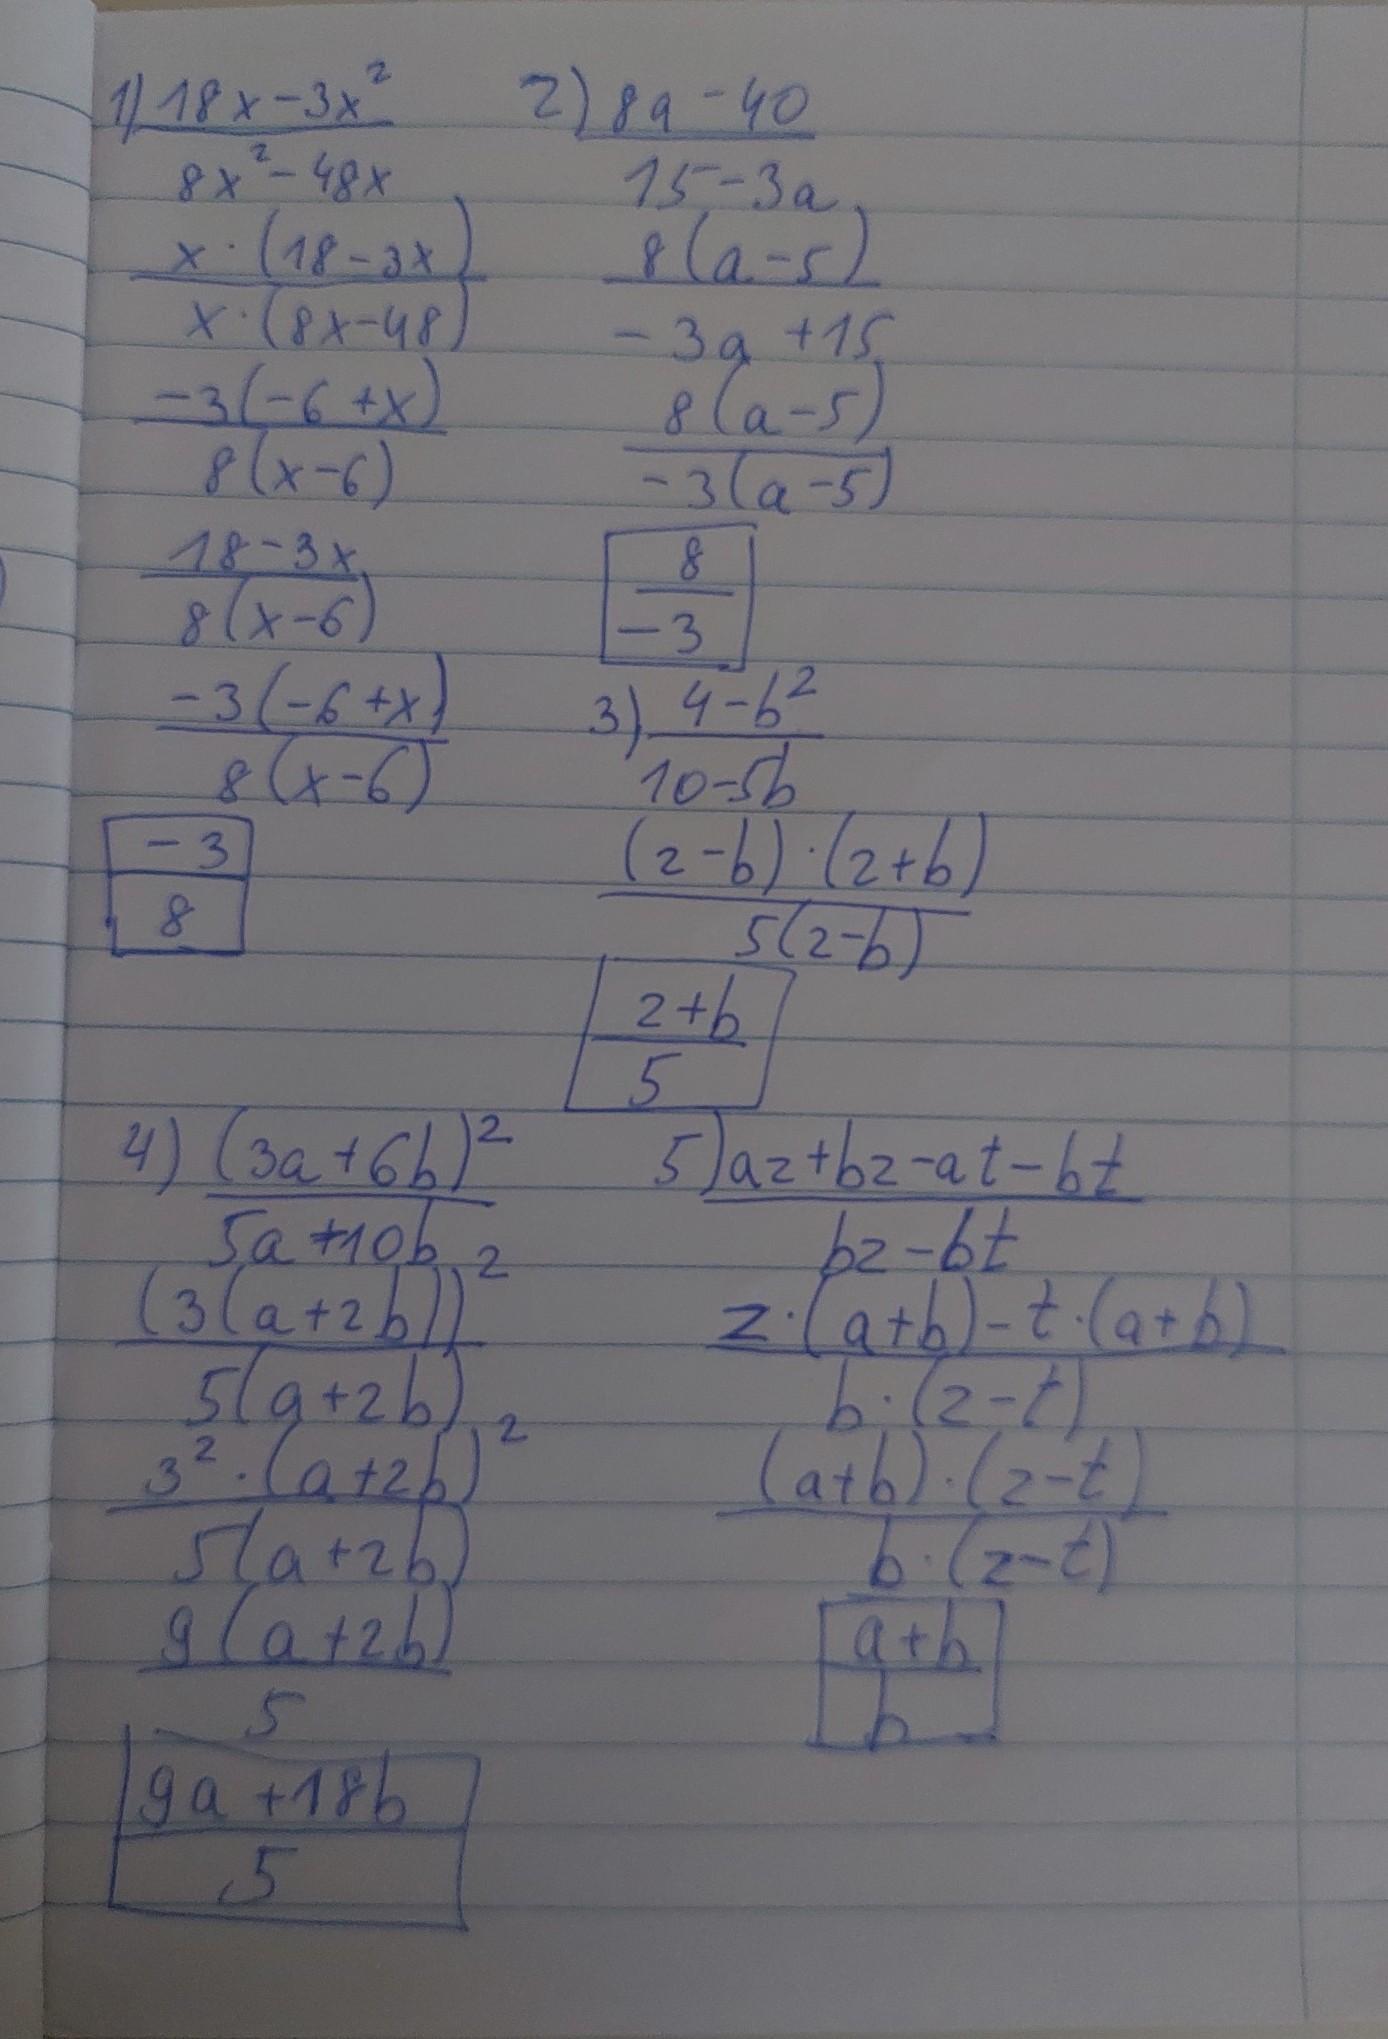 1) 18x-3x²
8x²-48x
x·(18-3x)
x·(8x-48)
-3(-6+x)
8(x-6)
18-3x
8(x-6)
-3(-6+x)
8(x-6)
-3
8
2) 8a-40
15-3a
8(a-5)
-3a+15
8(a-5)
-3(a-5)
8
-3
3) 4-b²
10-5b
(2-b)·(2+b)
5(2-b)
2+b
5
4) (3a+6b)²
5a+10b
(3(a+2b))²
5(a+2b)
3²·(a+2b)²
5(a+2b)
9(a+2b)
5
9a+18b
5
5) az+bz-at-bt
bz-bt
z·(a+b)-t·(a+b)
b·(z-t)
(a+b)·(z-t)
b·(z-t)
a+b
b